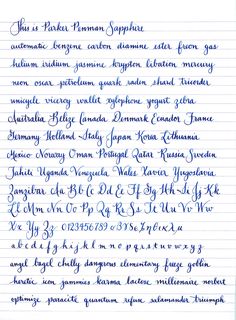 This is Parker Penman Sapphire
automatic benzene carbon diamine ester freon gas
helium iridium jasmine krypton lebation mercury
neon oscar petroleum quark radon shard tricorder
unicycle viceroy wallet xylophone yogurt zebra
Australia Belize Canada Denmark Ecuador France
Germany Holland Italy Japan Korea Lithuania
Mexico Norway Oman Portugal Qatar Russia Sweden
Tahiti Uganda Venezuela Wales Xavier Yugoslavia
Zanzibar Aa Bb Cc Dd Ee Ff Gg Hh Ii Jj Kk
Ll Mm Nn Oo Pp Qq Rr Ss Tt Uu Vv Ww
Xx Yy Zz 0123456789
a b c d e f g h i j k l m n o p q r s t u v w x y z
angel bagel chilly dangerous elementary freeze goblin
heretic icon jammies karma lactose millionaire norbert
optimize paracite quantum refuse salamander triumph